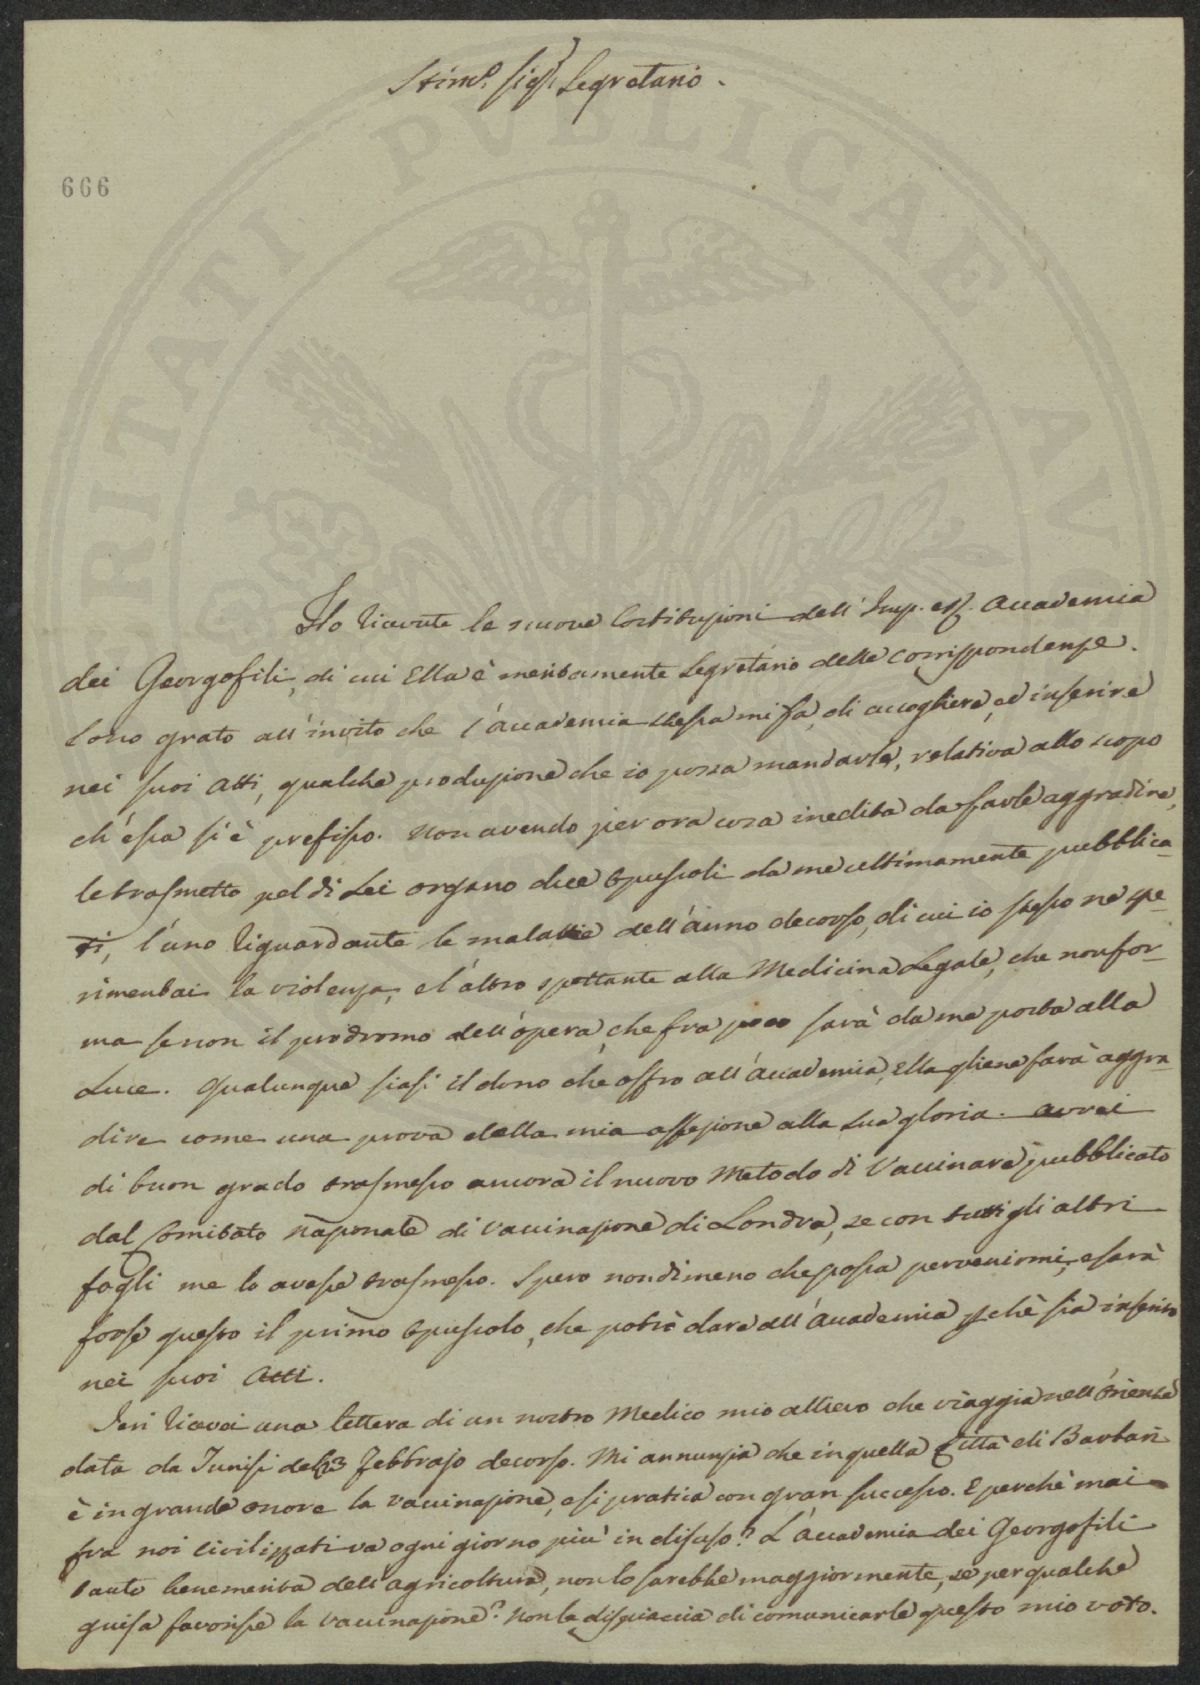 Stim.º Sigr. Segretario.
666
Ho ricevute le nuove Costituzioni dell'Imp. e R. Accademia
dei Georgofili, di cui Ella è meritamente Segretario delle corrispondenze.
Sono grato all'invito che l'Accademia stessa mi fà, di accogliere, ed inserire
nei suoi Atti, qualche produzione che io possa mandarle, relativa allo scopo
ch'essa si è prefisso. Non avendo per ora cosa inedita da farle aggradire,
le trasmetto pel di Lei organo due opuscoli da me ultimamente pubblica-
ti, l'uno riguardante le malattie dell'anno decorso, di cui io stesso ne spe-
rimentai la violenza, e l'altro spettante alla Medicina Legale, che non for-
ma se non il prodromo dell'opera, che fra poco sarà da me porta alla
Luce. Qualunque siasi il dono ch'offro all'Accademia, Ella gliene farà aggra-
dire come una prova della mia affezione alla sua gloria. Avrei
di buon grado trasmesso ancora il nuovo Metodo di Vaccinare pubblicato
dal Comitato Nazionale di Vaccinazione di Londra, se con tutti gli altri
fogli me lo avesse trasmesso. Spero nondimeno che possa pervenirmi, e sarà
forse questo il primo opuscolo, che potrò dare all'Accademia pchè sia inserito
nei suoi Atti.
Jeri ricevei una lettera di un nostro Medico mio allievo che viaggia nell'Oriente
data da Tunisi del 23 Febbrajo decorso. Mi annunzia che in quella Città di Barbari
è in grande onore la vaccinazione, e si pratica con gran successo. E perchè mai
fra noi civilizzati va ogni giorno più in disuso? L'Accademia dei Georgofili
tanto benemerita dell'agricoltura, non lo sarebbe maggiormente, se per qualche
guisa favorisse la vaccinazione? Non le dispiaccia di comunicarle questo mio voto.
PVBLICAE
RITATI
AV